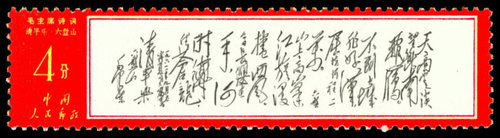 毛主席诗词
清平乐·六盘山
4分
中国
人民邮政
天高云淡
望断南飞
雁
不到长城
非好汉
屈指行程二
万
六盘
山上高峰
红旗漫
卷西风
今日长缨在
手
何
时缚住
苍龙
清平乐
毛泽东